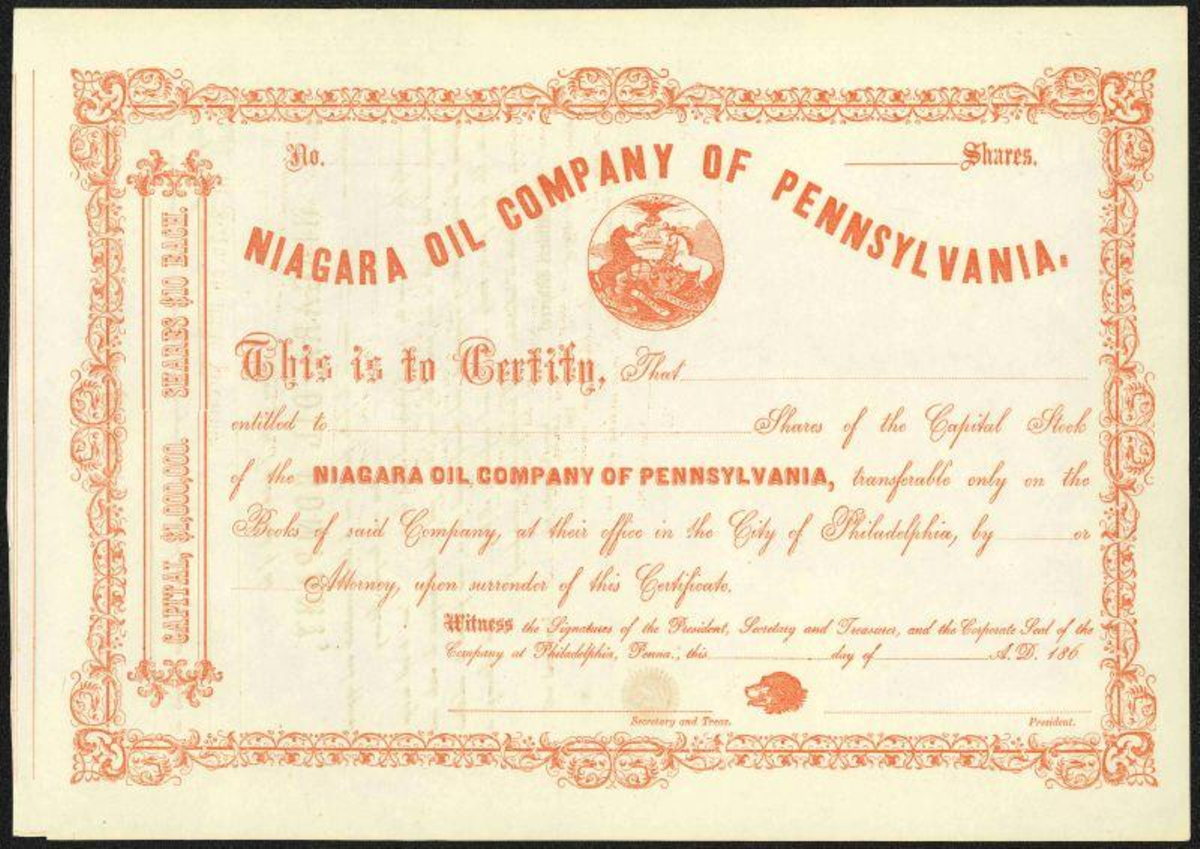 No. Shares.
NIAGARA OIL COMPANY OF PENNSYLVANIA.
CAPITAL, $1,000,000. SHARES $10 EACH.
This is to Certify, That
entitled to Shares of the Capital Stock
of the NIAGARA OIL COMPANY OF PENNSYLVANIA, transferable only on the
Books of said Company, at their office in the City of Philadelphia, by or
Attorney, upon surrender of this Certificate.
Witness the Signatures of the President, Secretary and Treasurer, and the Corporate Seal of the
Company at Philadelphia, Penna., this day of A.D. 186
Secretary and Treas. President.